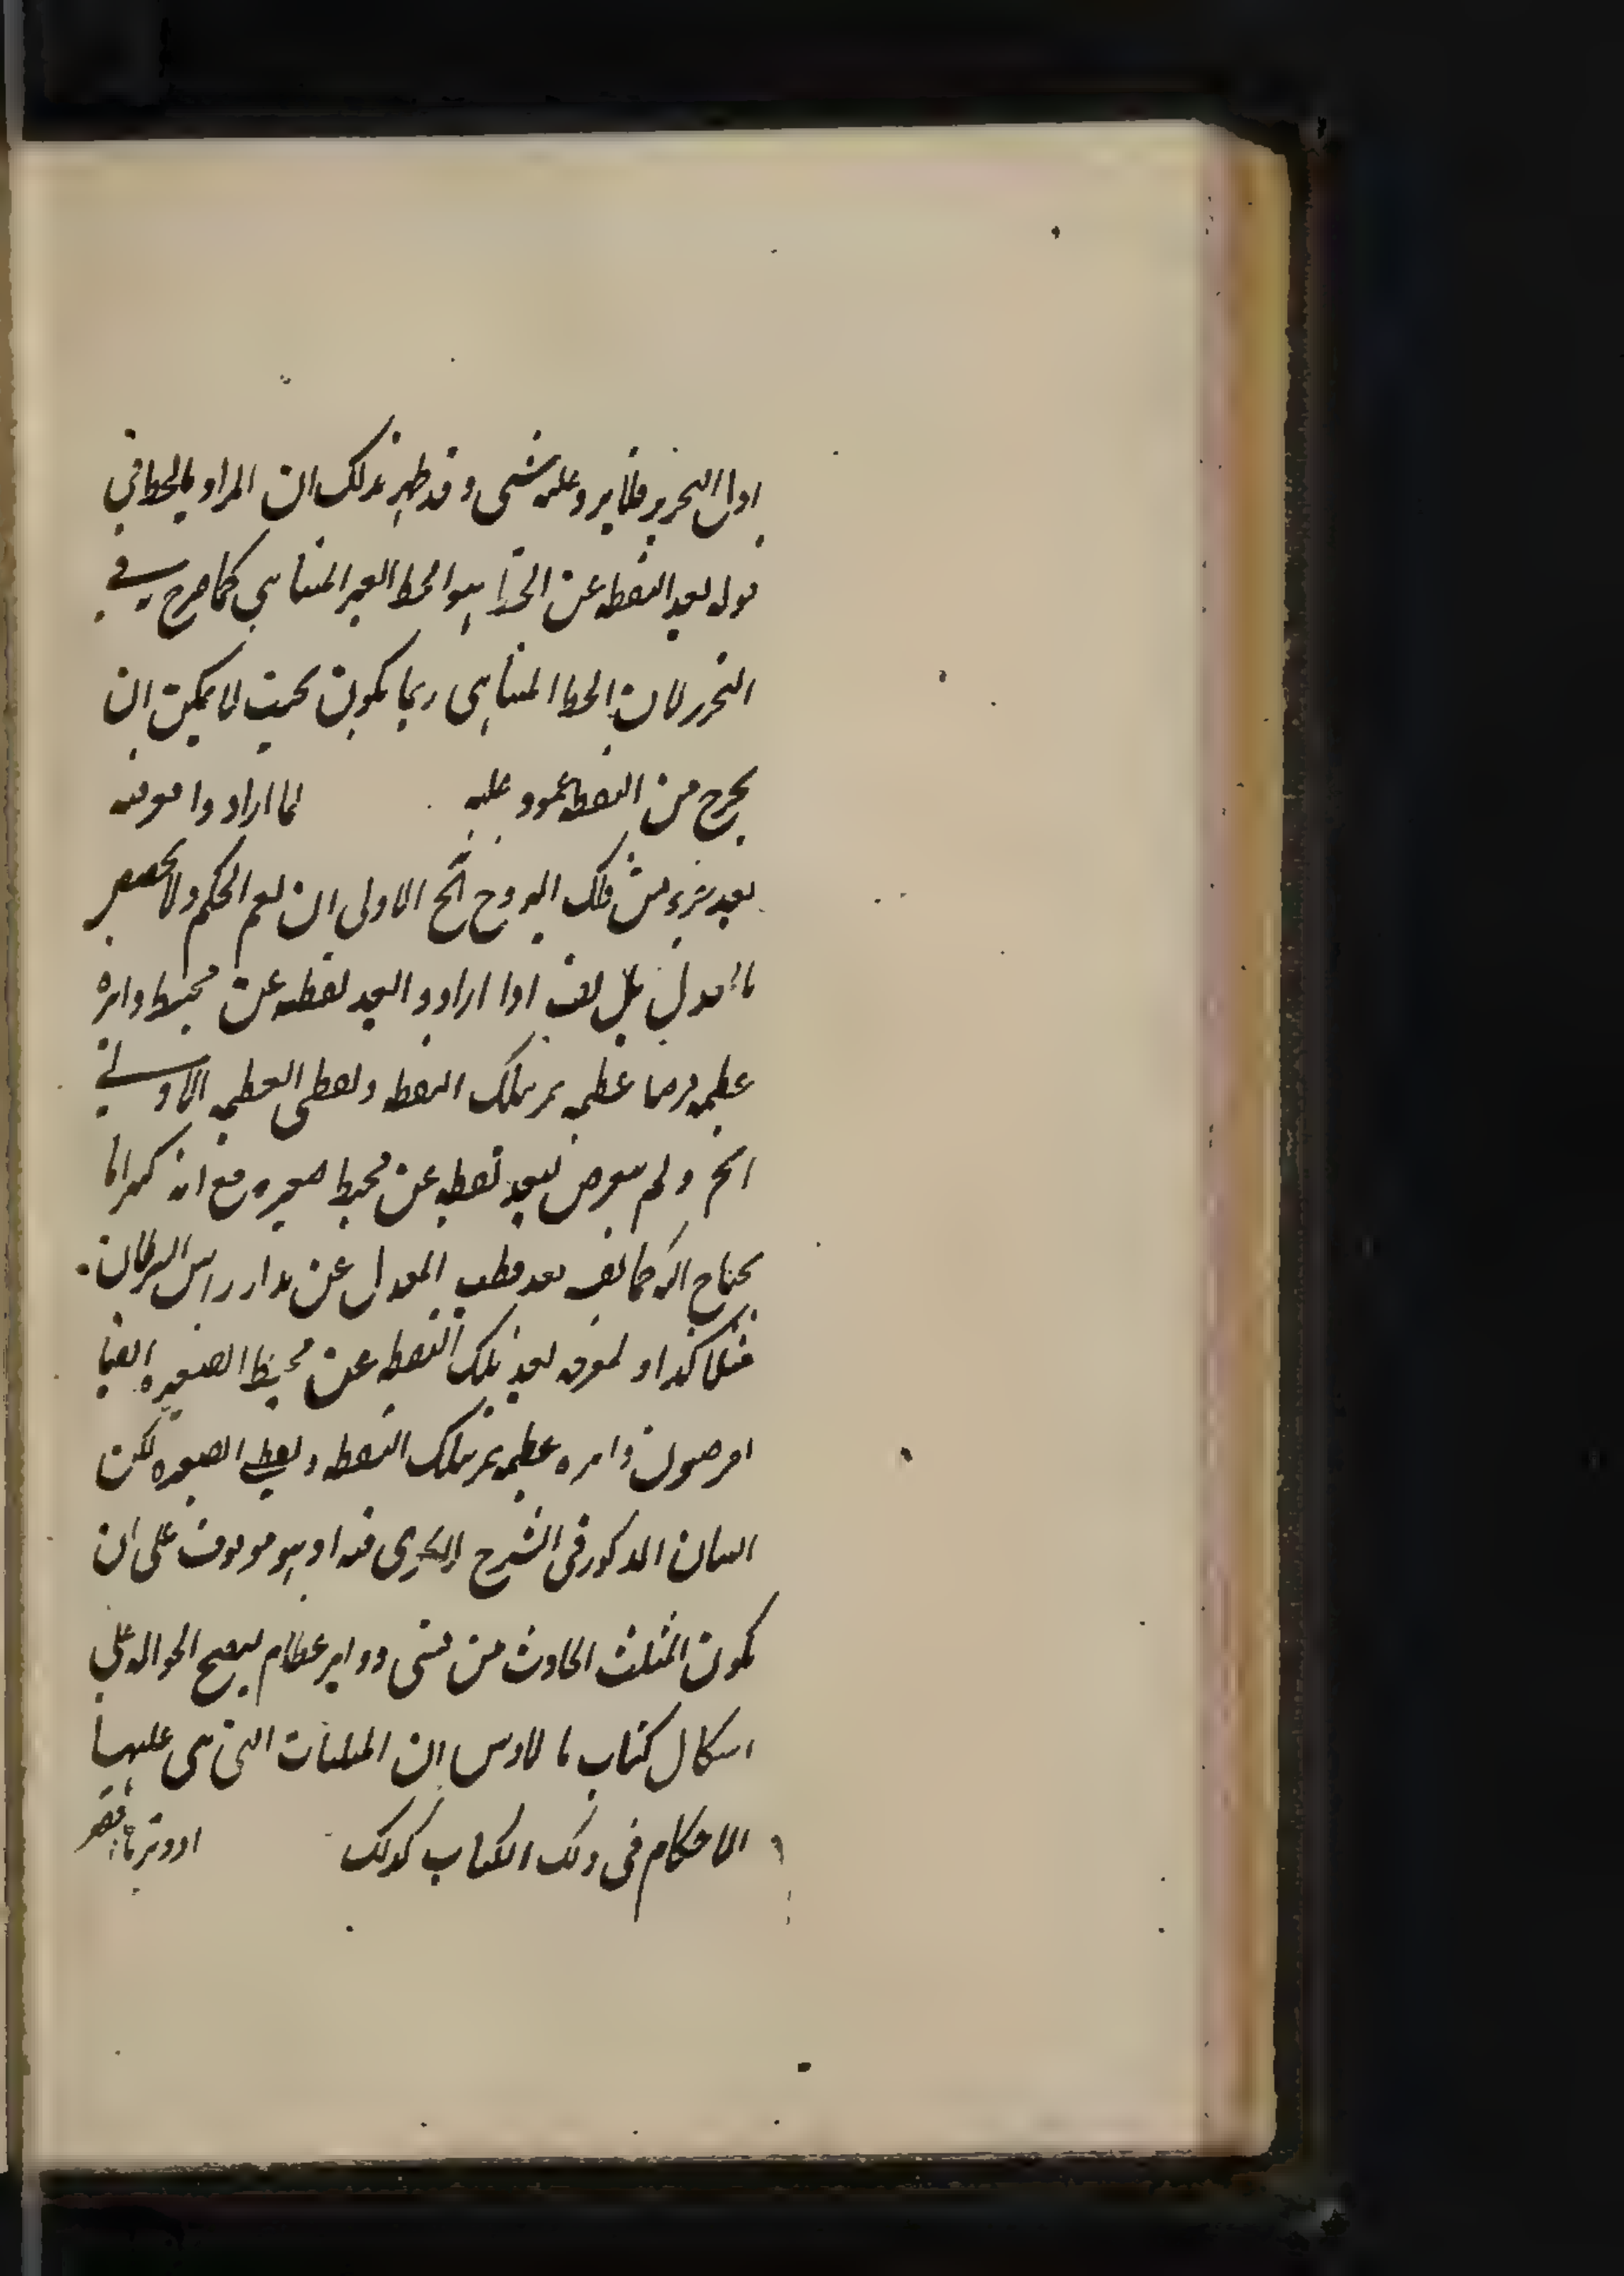 اول التحرير فلا يرد عليه شى و قد ظهر بذلك ان المراد بالخط فى
قوله بعد النقطه عن الخط هو الخط الغير المتناهى كما صرح فى
التحرير لان الخط المتناهى ربما يكون بحيث لا يمكن ان
يخرج من النقطه عمود عليه لما ارادوا معرفه
بعد جزء من فلك البروج الخ الاولى ان يعم الحكم ولا يخصص
بالمعدل بل يقف اذا ارادوا البعد نقطه عن محيط دائره
عظيمه فرضنا عظيمه تمر بتلك النقطه و نقطى العظيمه الاولى
الخ و لم يتعرض لبعد نقطه عن محيط صغيره مع انه كثيرا ما
يحتاج اليه كما يقف بعد قطب المعدل عن مدار راس السرطان
مثلا كذا و لمعرفه بعد تلك النقطه عن محيط الصغيره ايضا
يفرضون دايره عظيمه تمر بتلك النقطه و نقطى الصغيره لكن
البيان المذكور فى الشرح لا يجرى فيه اذ هو موقوف على ان
يكون المثلث الحادث من قسى دواير عظام ليصح الحواله على
اشكال كتاب مالاناوس ان المثلثات التى هى عليها
الاحكام فى ذلك الكتاب كذلك